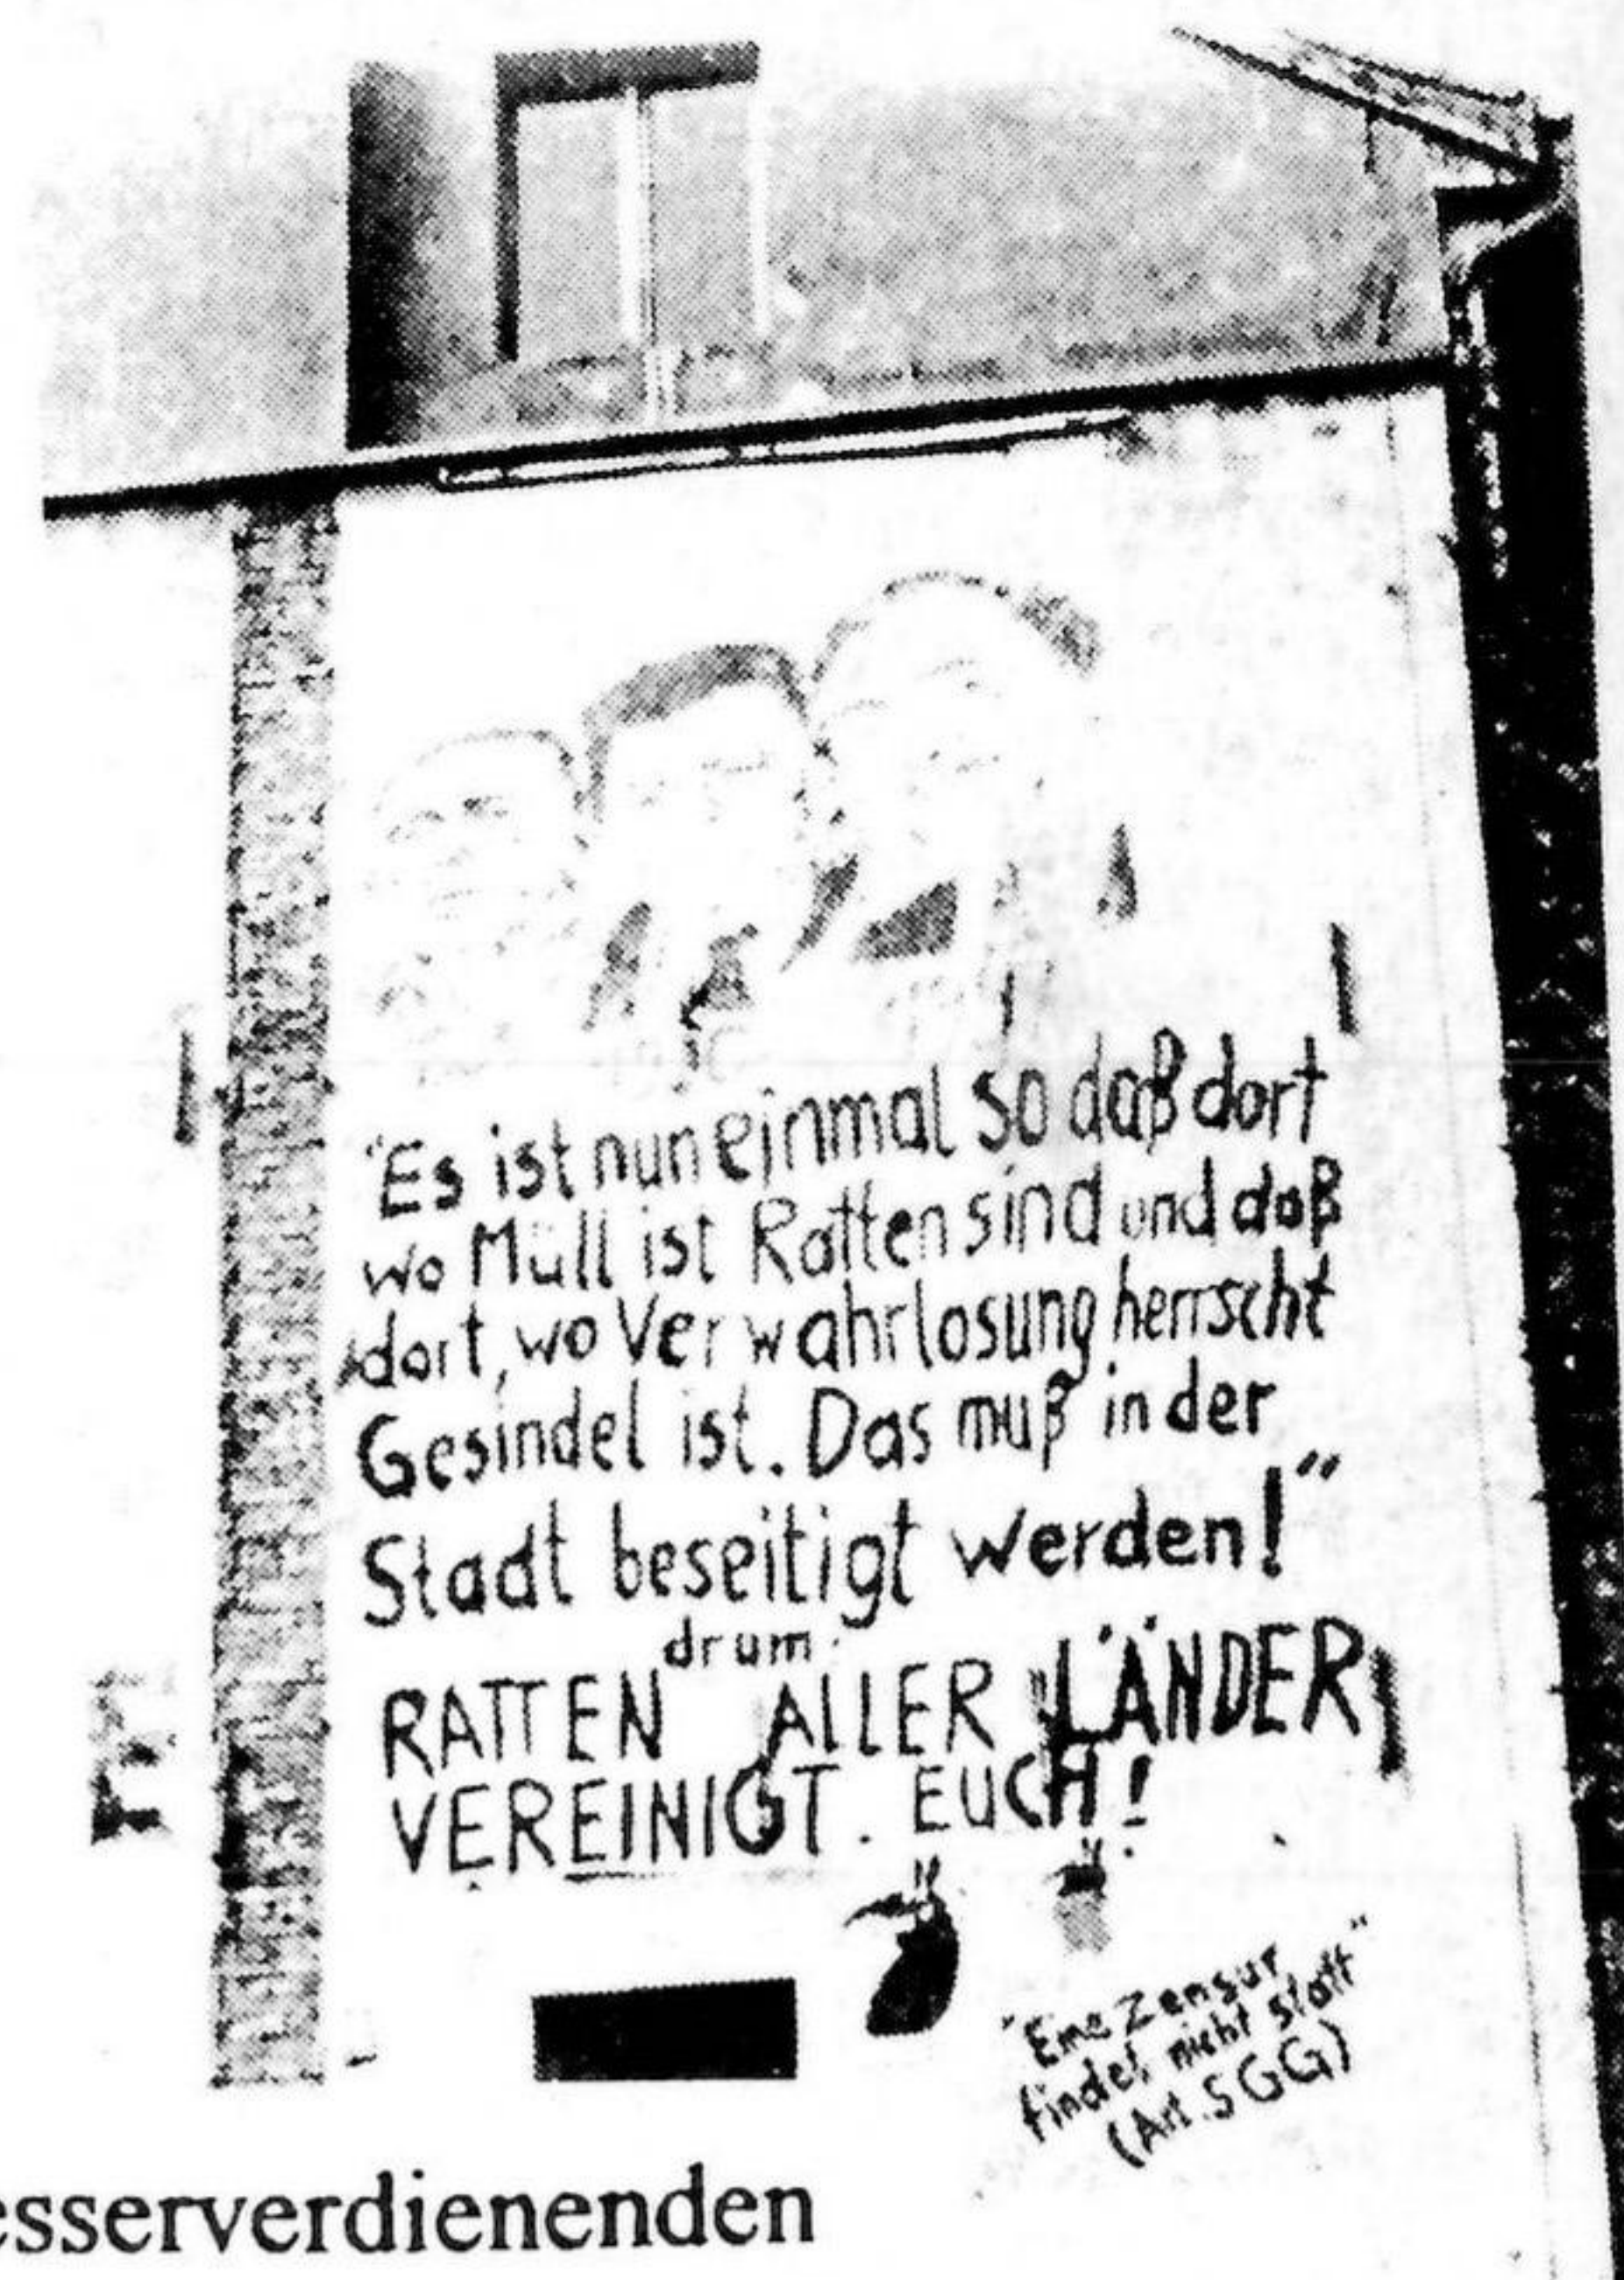 "Es ist nun einmal so daß dort
wo Müll ist Ratten sind und daß
dort, wo Verwahrlosung herrscht
Gesindel ist. Das muß in der
Stadt beseitigt werden!"
drum
RATTEN ALLER LÄNDER
VEREINIGT EUCH!
"Eine Zensur
findet nicht statt"
(Art. 5 GG)
esserverdienenden